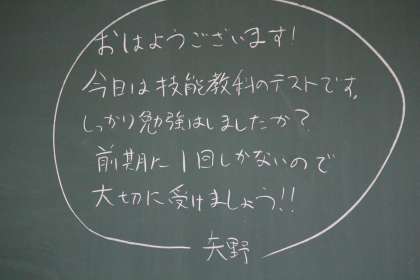 おはようございます!
今日は技能教科のテストです。
しっかり勉強はしましたか?
前期に1回しかないので
大切に受けましょう!!
矢野